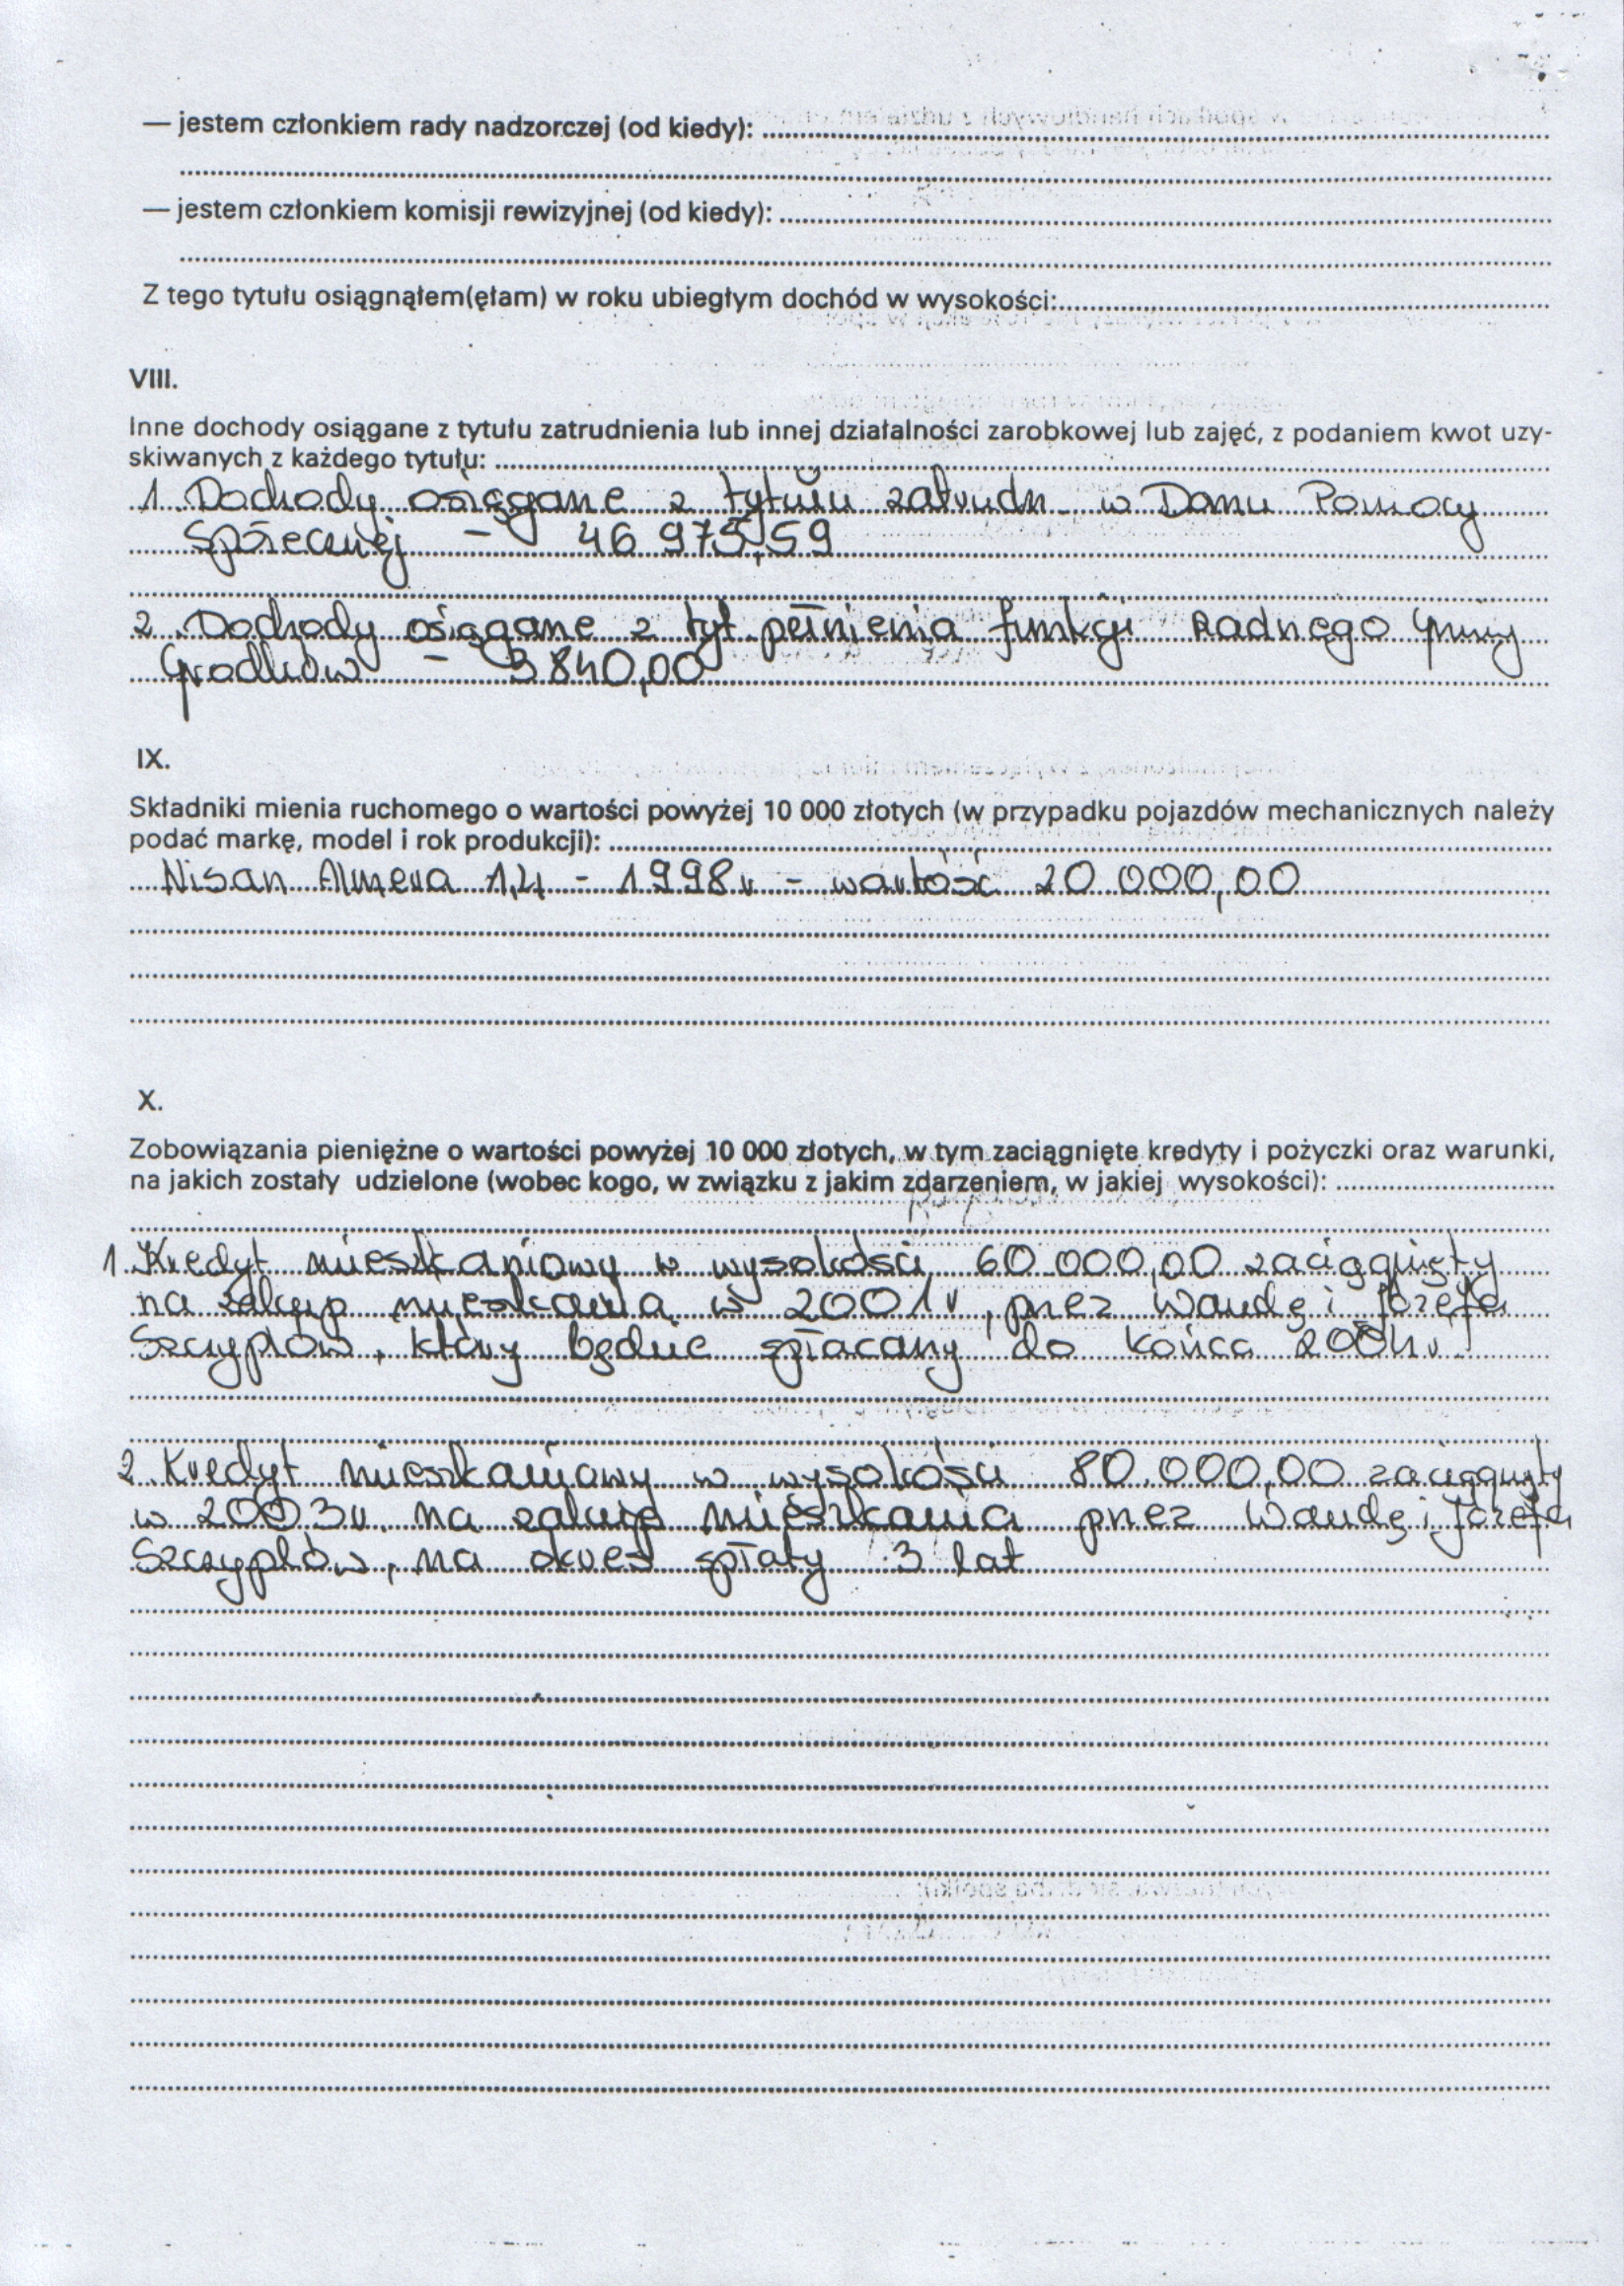 — jestem członkiem rady nadzorczej (od kiedy):
— jestem członkiem komisji rewizyjnej (od kiedy):
Z tego tytułu osiągnąłem(ęłam) w roku ubiegłym dochód w wysokości:
VIII.
Inne dochody osiągane z tytułu zatrudnienia lub innej działalności zarobkowej lub zajęć, z podaniem kwot uzy-
skiwanych z każdego tytułu:
1. Dochody osiągane z tytułu zatrudn. w Domu Pomocy
Społecznej – 46 975,59
2. Dochody osiągane z tyt. pełnienia funkcji Radnego Gminy
Grodków – 3 840,00
IX.
Składniki mienia ruchomego o wartości powyżej 10 000 złotych (w przypadku pojazdów mechanicznych należy
podać markę, model i rok produkcji):
Nisan Almera 1,4 – 1998 r – wartość 20 000,00
X.
Zobowiązania pieniężne o wartości powyżej 10 000 złotych, w tym zaciągnięte kredyty i pożyczki oraz warunki,
na jakich zostały udzielone (wobec kogo, w związku z jakim zdarzeniem, w jakiej wysokości):
1. Kredyt mieszkaniowy w wysokości 60 000,00 zaciągnięty
na zakup mieszkania w 2001 r, przez Wandę i Józefa
Szczyplów, który będzie spłacany do końca 2004 r.
2. Kredyt mieszkaniowy w wysokości 80.000,00 zaciągnięty
w 2003 r. na zakup mieszkania przez Wandę i Józefa
Szczyplów, na okres spłaty 3 lat